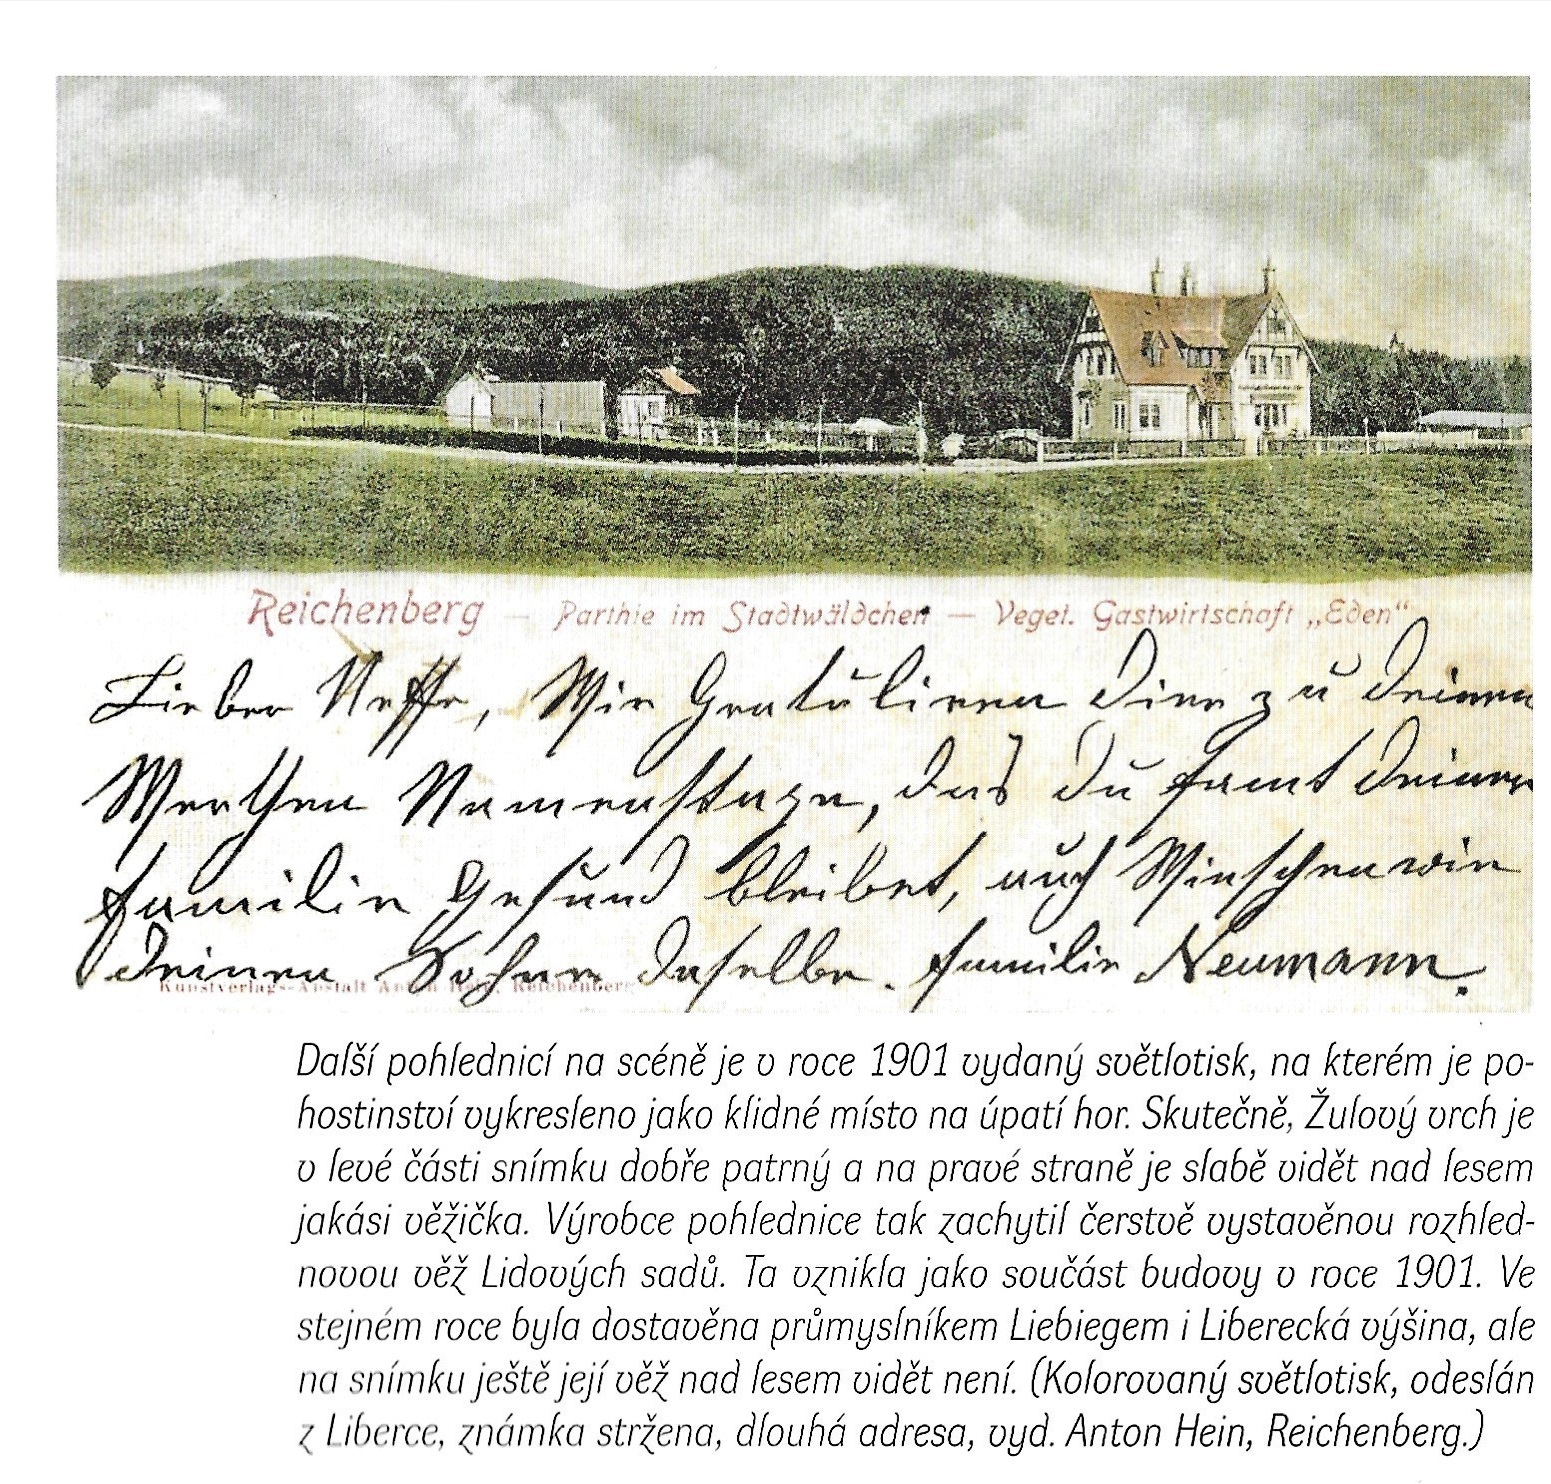 Reichenberg — Parthie im Stadtwäldchen — Veget. Gastwirtschaft „Eden“
Lieber Neffe, Wir Gratuliren Dier zu deinen
Werthen Namenstage, das du samt deiner
Familie Gesund bleibet, auch Winschen wir
deinen Sohne daselbe. Familie Neumann.
Kunstverlags-Anstalt Anton Hein, Reichenberg
Další pohlednicí na scéně je v roce 1901 vydaný světlotisk, na kterém je po-
hostinství vykresleno jako klidné místo na úpatí hor. Skutečně, Žulový vrch je
v levé části snímku dobře patrný a na pravé straně je slabě vidět nad lesem
jakási věžička. Výrobce pohlednice tak zachytil čerstvě vystavěnou rozhled-
novou věž Lidových sadů. Ta vznikla jako součást budovy v roce 1901. Ve
stejném roce byla dostavěna průmyslníkem Liebiegem i Liberecká výšina, ale
na snímku ještě její věž nad lesem vidět není. (Kolorovaný světlotisk, odeslán
z Liberce, známka stržena, dlouhá adresa, vyd. Anton Hein, Reichenberg.)